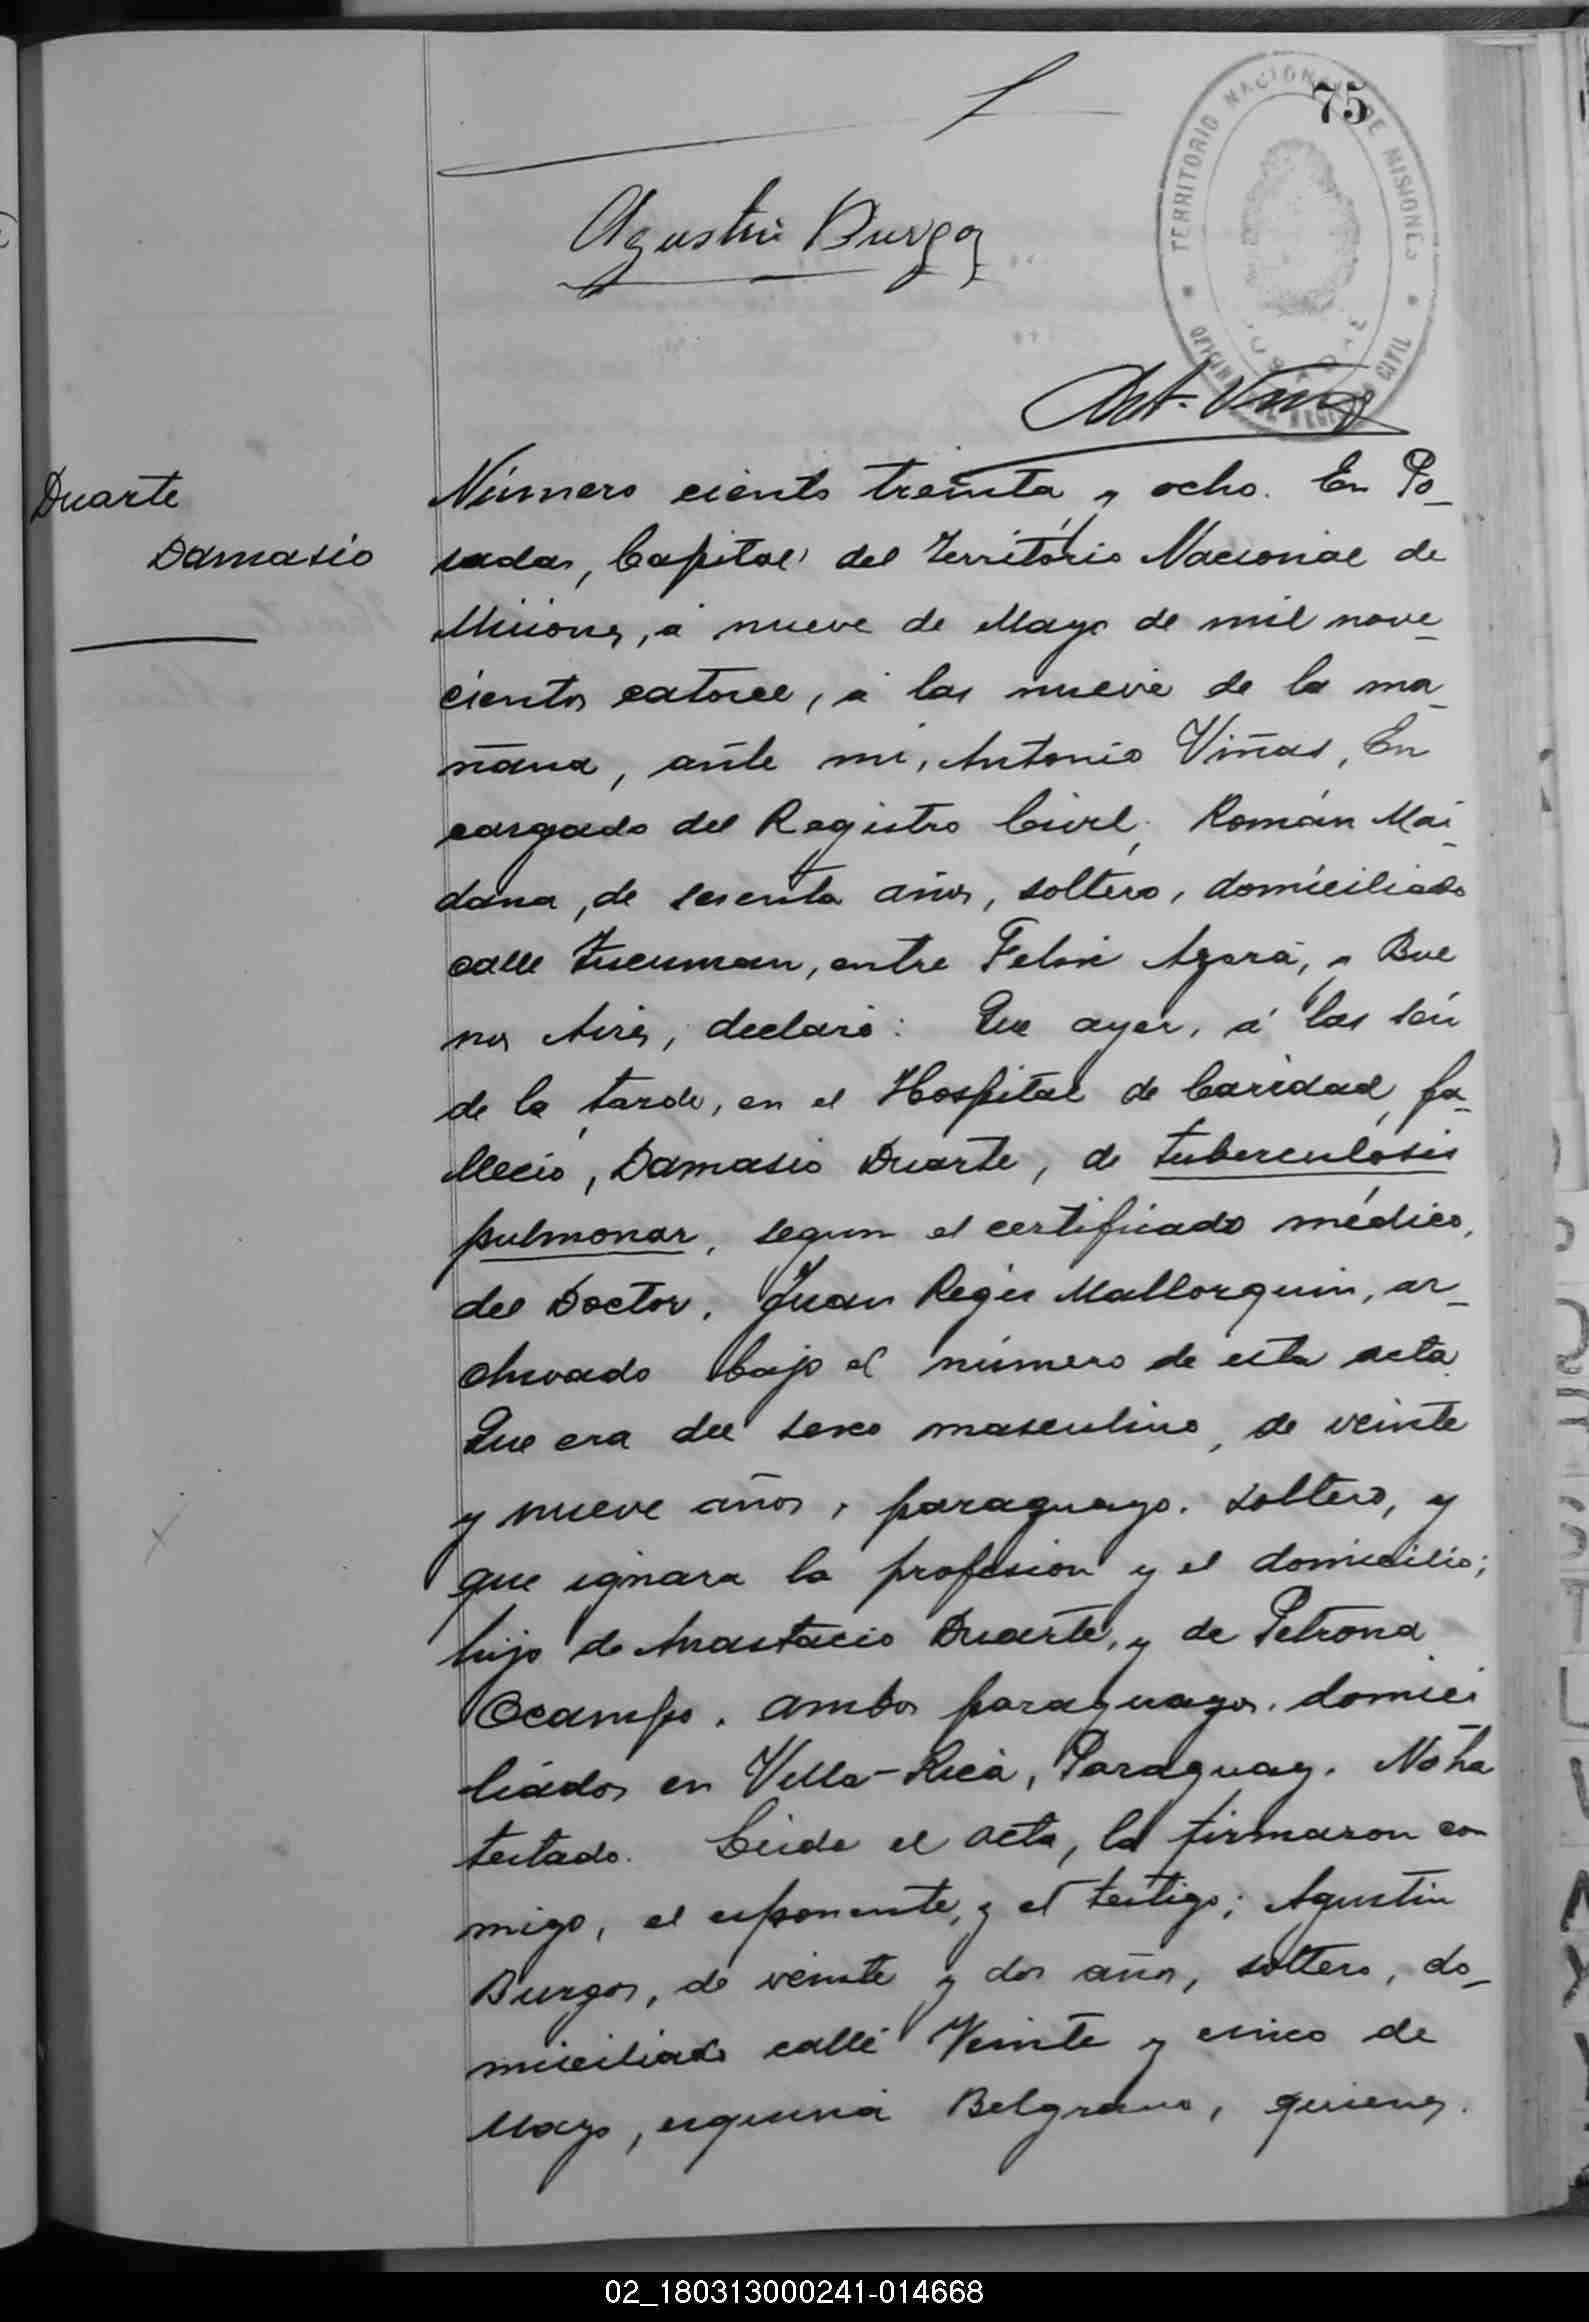 75
TERRITORIO NACIONAL DE MISIONES
OFICINA REGISTRO CIVIL
Agustin Burgos
Ant. Viñas
Duarte
Damasio
Número ciento treinta y ocho. En Po-
sadas, Capital del Territorio Nacional de
Misiones, á nueve de Mayo de mil nove-
cientos catorce, á las nueve de la ma-
ñana, ante mi, Antonio Viñas, En
cargado del Registro Civil, Román Mai-
dana, de sesenta años, soltero, domiciliado
calle Tucuman, entre Felix Azara, y Bue
nos Aires, declaró: Que ayer, á las seis
de la tarde, en el Hospital de Caridad, fa-
lleció, Damasio Duarte, de tuberculosis
pulmonar, segun el certificado médico,
del Doctor, Juan Regis Mallorquin, ar-
chivado bajo el número de esta acta.
Que era del sexo masculino, de veinte
y nueve años, paraguayo, soltero, y
que ignora la profesion y el domicilio;
hijo de Anastacio Duarte, y de Petrona
Ocampo, ambos paraguayos, domici-
liados en Villa-Rica, Paraguay. No ha
testado. Leida el acta, la firmaron con
migo, el exponente, y el testigo; Agustin
Burgos, de veinte y dos años, soltero, do-
miciliado calle Veinte y cinco de
Mayo, esquina Belgrano, quienes.
02_180313000241-014668